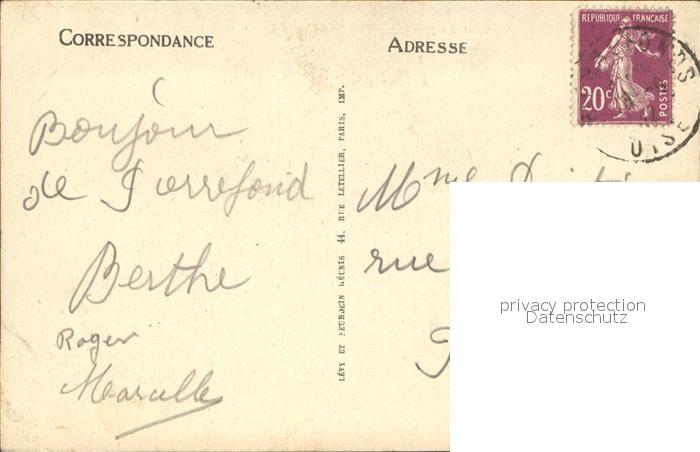 CORRESPONDANCE
ADRESSE
REPUBLIQUE FRANÇAISE
20c
POSTES
OISE
Bonjour
de Pierrefond
Berthe
Roger
Marcelle
LÉVY ET NEURDEIN RÉUNIS 44, RUE LETELLIER, PARIS, IMP.
Mme
rue
privacy protection
Datenschutz